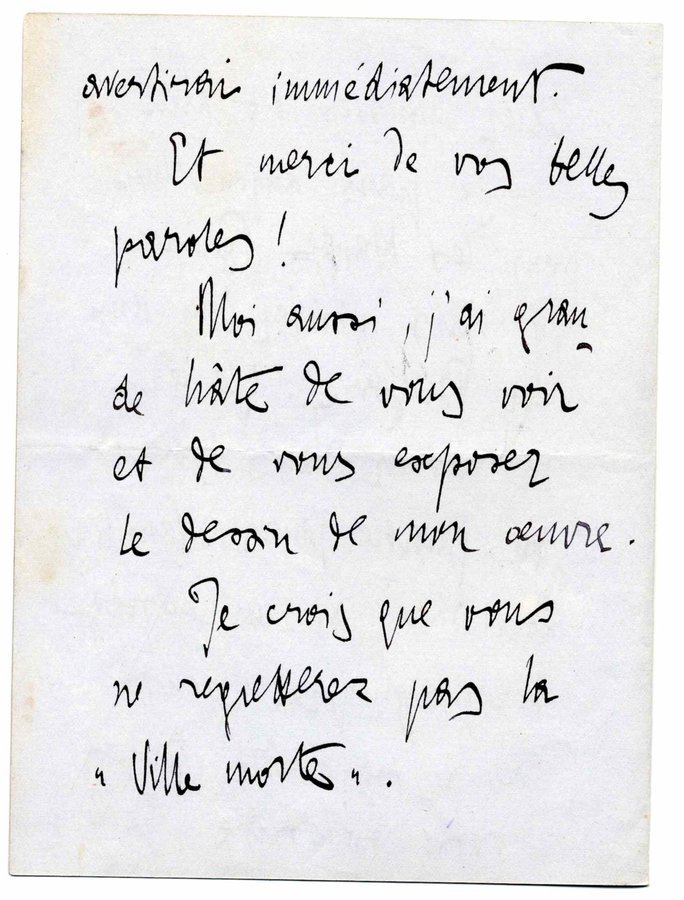 avertirai immédiatement.
Et merci de vos belles
paroles !
Moi aussi, j'ai gran
de hâte de vous voir
et de vous exposer
le dessin de mon œuvre.
Je crois que vous
ne regretterez pas la
"Ville morte".